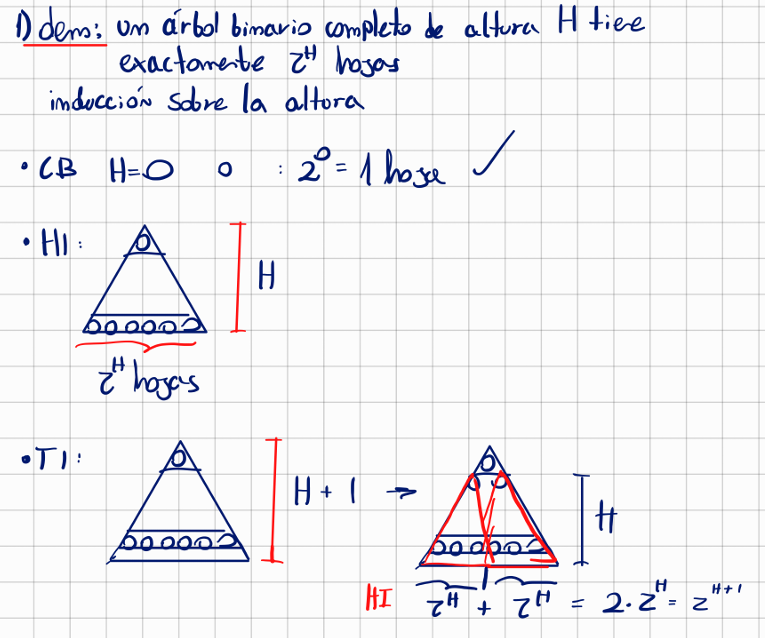 1) dem: un árbol binario completo de altura H tiene
exactamente 2^H hojas
inducción sobre la altura
• CB H=0 o : 2^0 = 1 hoja ✓
• HI:
H
2^H hojas
• TI:
H + 1 →
H
HI 2^H + 2^H = 2·2^H = 2^{H+1}